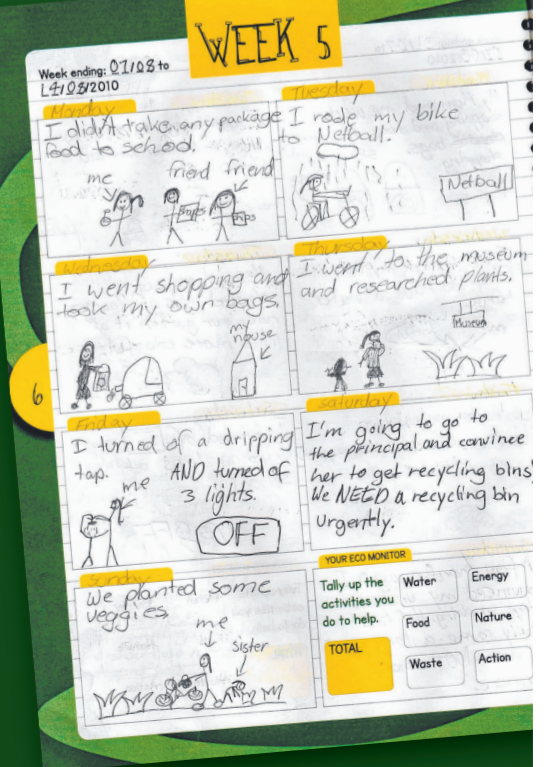 WEEK 5
Week ending: 07/08 to
14/08/2010
Monday
I didn't take any package
food to school.
me friend friend
Tuesday
I rode my bike
to Netball.
Netball
Wednesday
I went shopping and
took my own bags.
my
house
Thursday
I went to the museum
and researched plants.
Museum
6
Friday
I turned of a dripping
tap.
AND turned of
3 lights.
me
OFF
Saturday
I'm going to go to
the principal and convince
her to get recycling bins!
We NEED a recycling bin
urgently.
Sunday
We planted some
veggies.
me
sister
YOUR ECO MONITOR
Tally up the
activities you
do to help.
TOTAL
Water
Energy
Food
Nature
Waste
Action